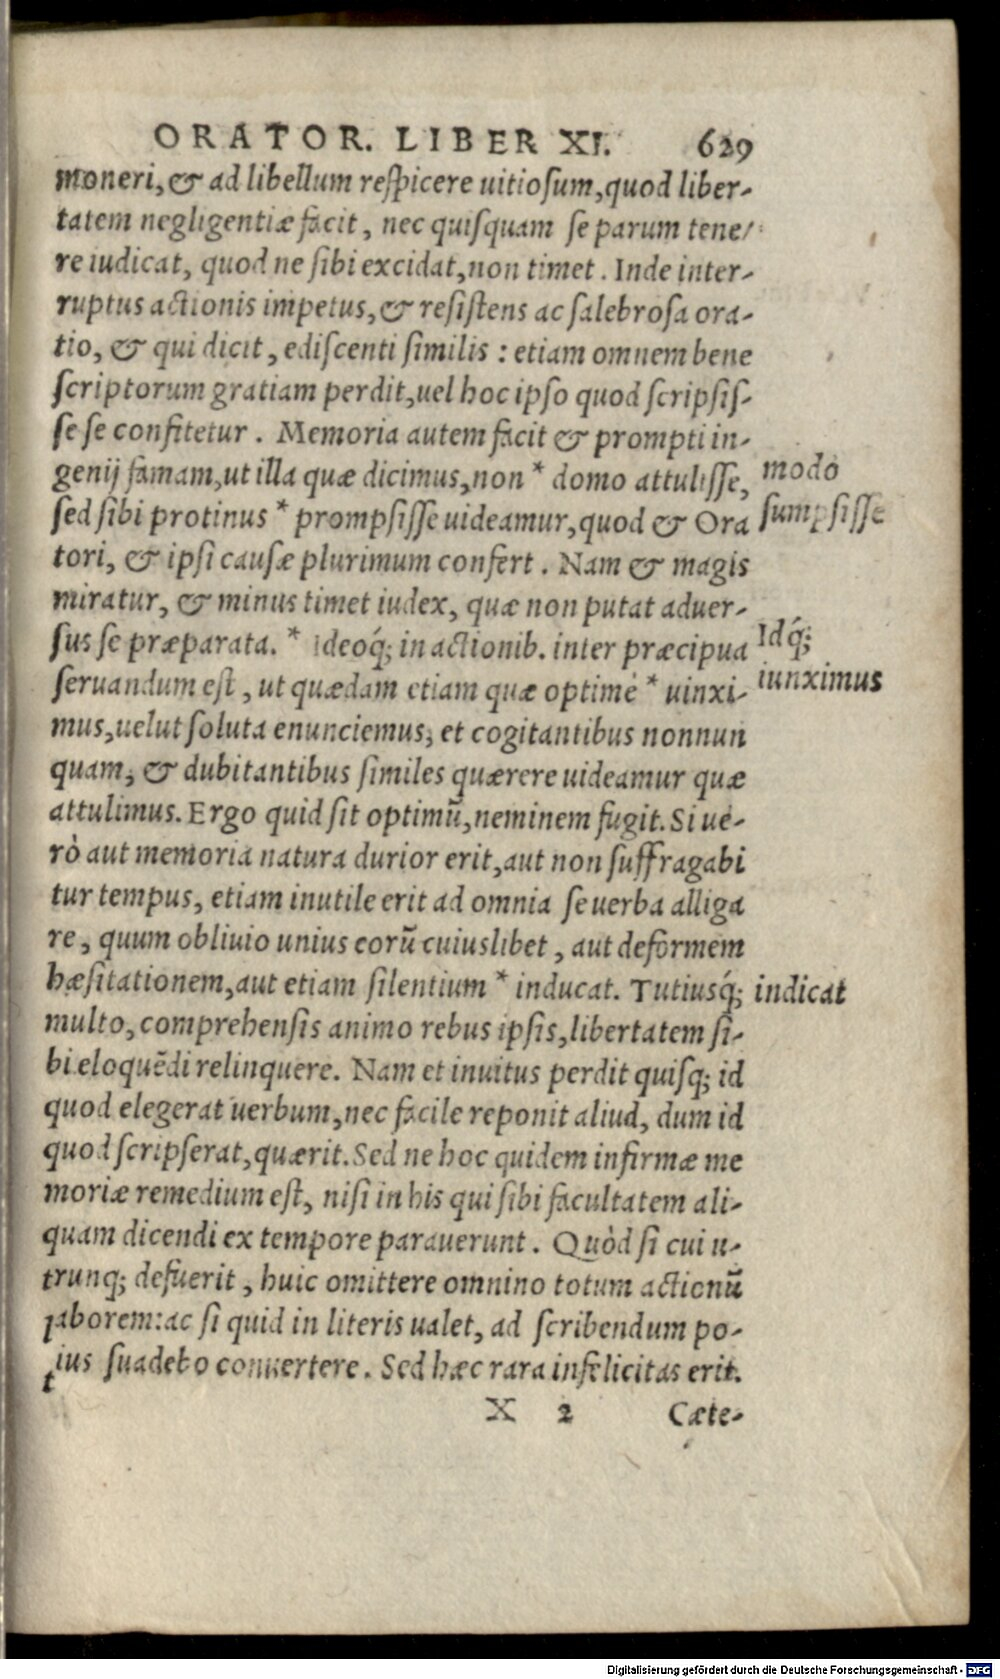 ORATOR. LIBER XI. 629
moneri, & ad libellum reſpicere uitioſum, quod liber-
tatem negligentiæ facit, nec quiſquam ſe parum tene-
re iudicat, quod ne ſibi excidat, non timet. Inde inter-
ruptus actionis impetus, & reſiſtens ac ſalebroſa ora-
tio, & qui dicit, ediſcenti ſimilis: etiam omnem bene
ſcriptorum gratiam perdit, uel hoc ipſo quod ſcripſiſ-
ſe ſe confitetur. Memoria autem facit & prompti in-
genij famam, ut illa quæ dicimus, non * domo attuliſſe, modo
ſed ſibi protinus * prompſiſſe uideamur, quod & Ora ſumpſiſſe
tori, & ipſi cauſæ plurimum confert. Nam & magis
miratur, & minus timet iudex, quæ non putat aduer-
ſus ſe præparata. * Ideoq́; in actionib. inter præcipua Idq́;
ſeruandum eſt, ut quædam etiam quæ optimè * uinxi- iunximus
mus, uelut ſoluta enunciemus; et cogitantibus nonnun
quam, & dubitantibus ſimiles quærere uideamur quæ
attulimus. Ergo quid ſit optimũ, neminem fugit. Si ue-
rò aut memoria natura durior erit, aut non ſuffragabi
tur tempus, etiam inutile erit ad omnia ſe uerba alliga
re, quum obliuio unius eorũ cuiuslibet, aut deformem
hæſitationem, aut etiam ſilentium * inducat. Tutiusq́; indicat
multo, comprehenſis animo rebus ipſis, libertatem ſi-
bi eloquẽdi relinquere. Nam et inuitus perdit quiſq; id
quod elegerat uerbum, nec facile reponit aliud, dum id
quod ſcripſerat, quærit. Sed ne hoc quidem infirmæ me
moriæ remedium eſt, niſi in his qui ſibi facultatem ali-
quam dicendi ex tempore parauerunt. Quòd ſi cui u-
trunq; defuerit, huic omittere omnino totum actionũ
laborem: ac ſi quid in literis ualet, ad ſcribendum po-
tius ſuadebo conuertere. Sed hæc rara infelicitas erit.
X 2 Cæte-
Digitalisierung gefördert durch die Deutsche Forschungsgemeinschaft - DFG